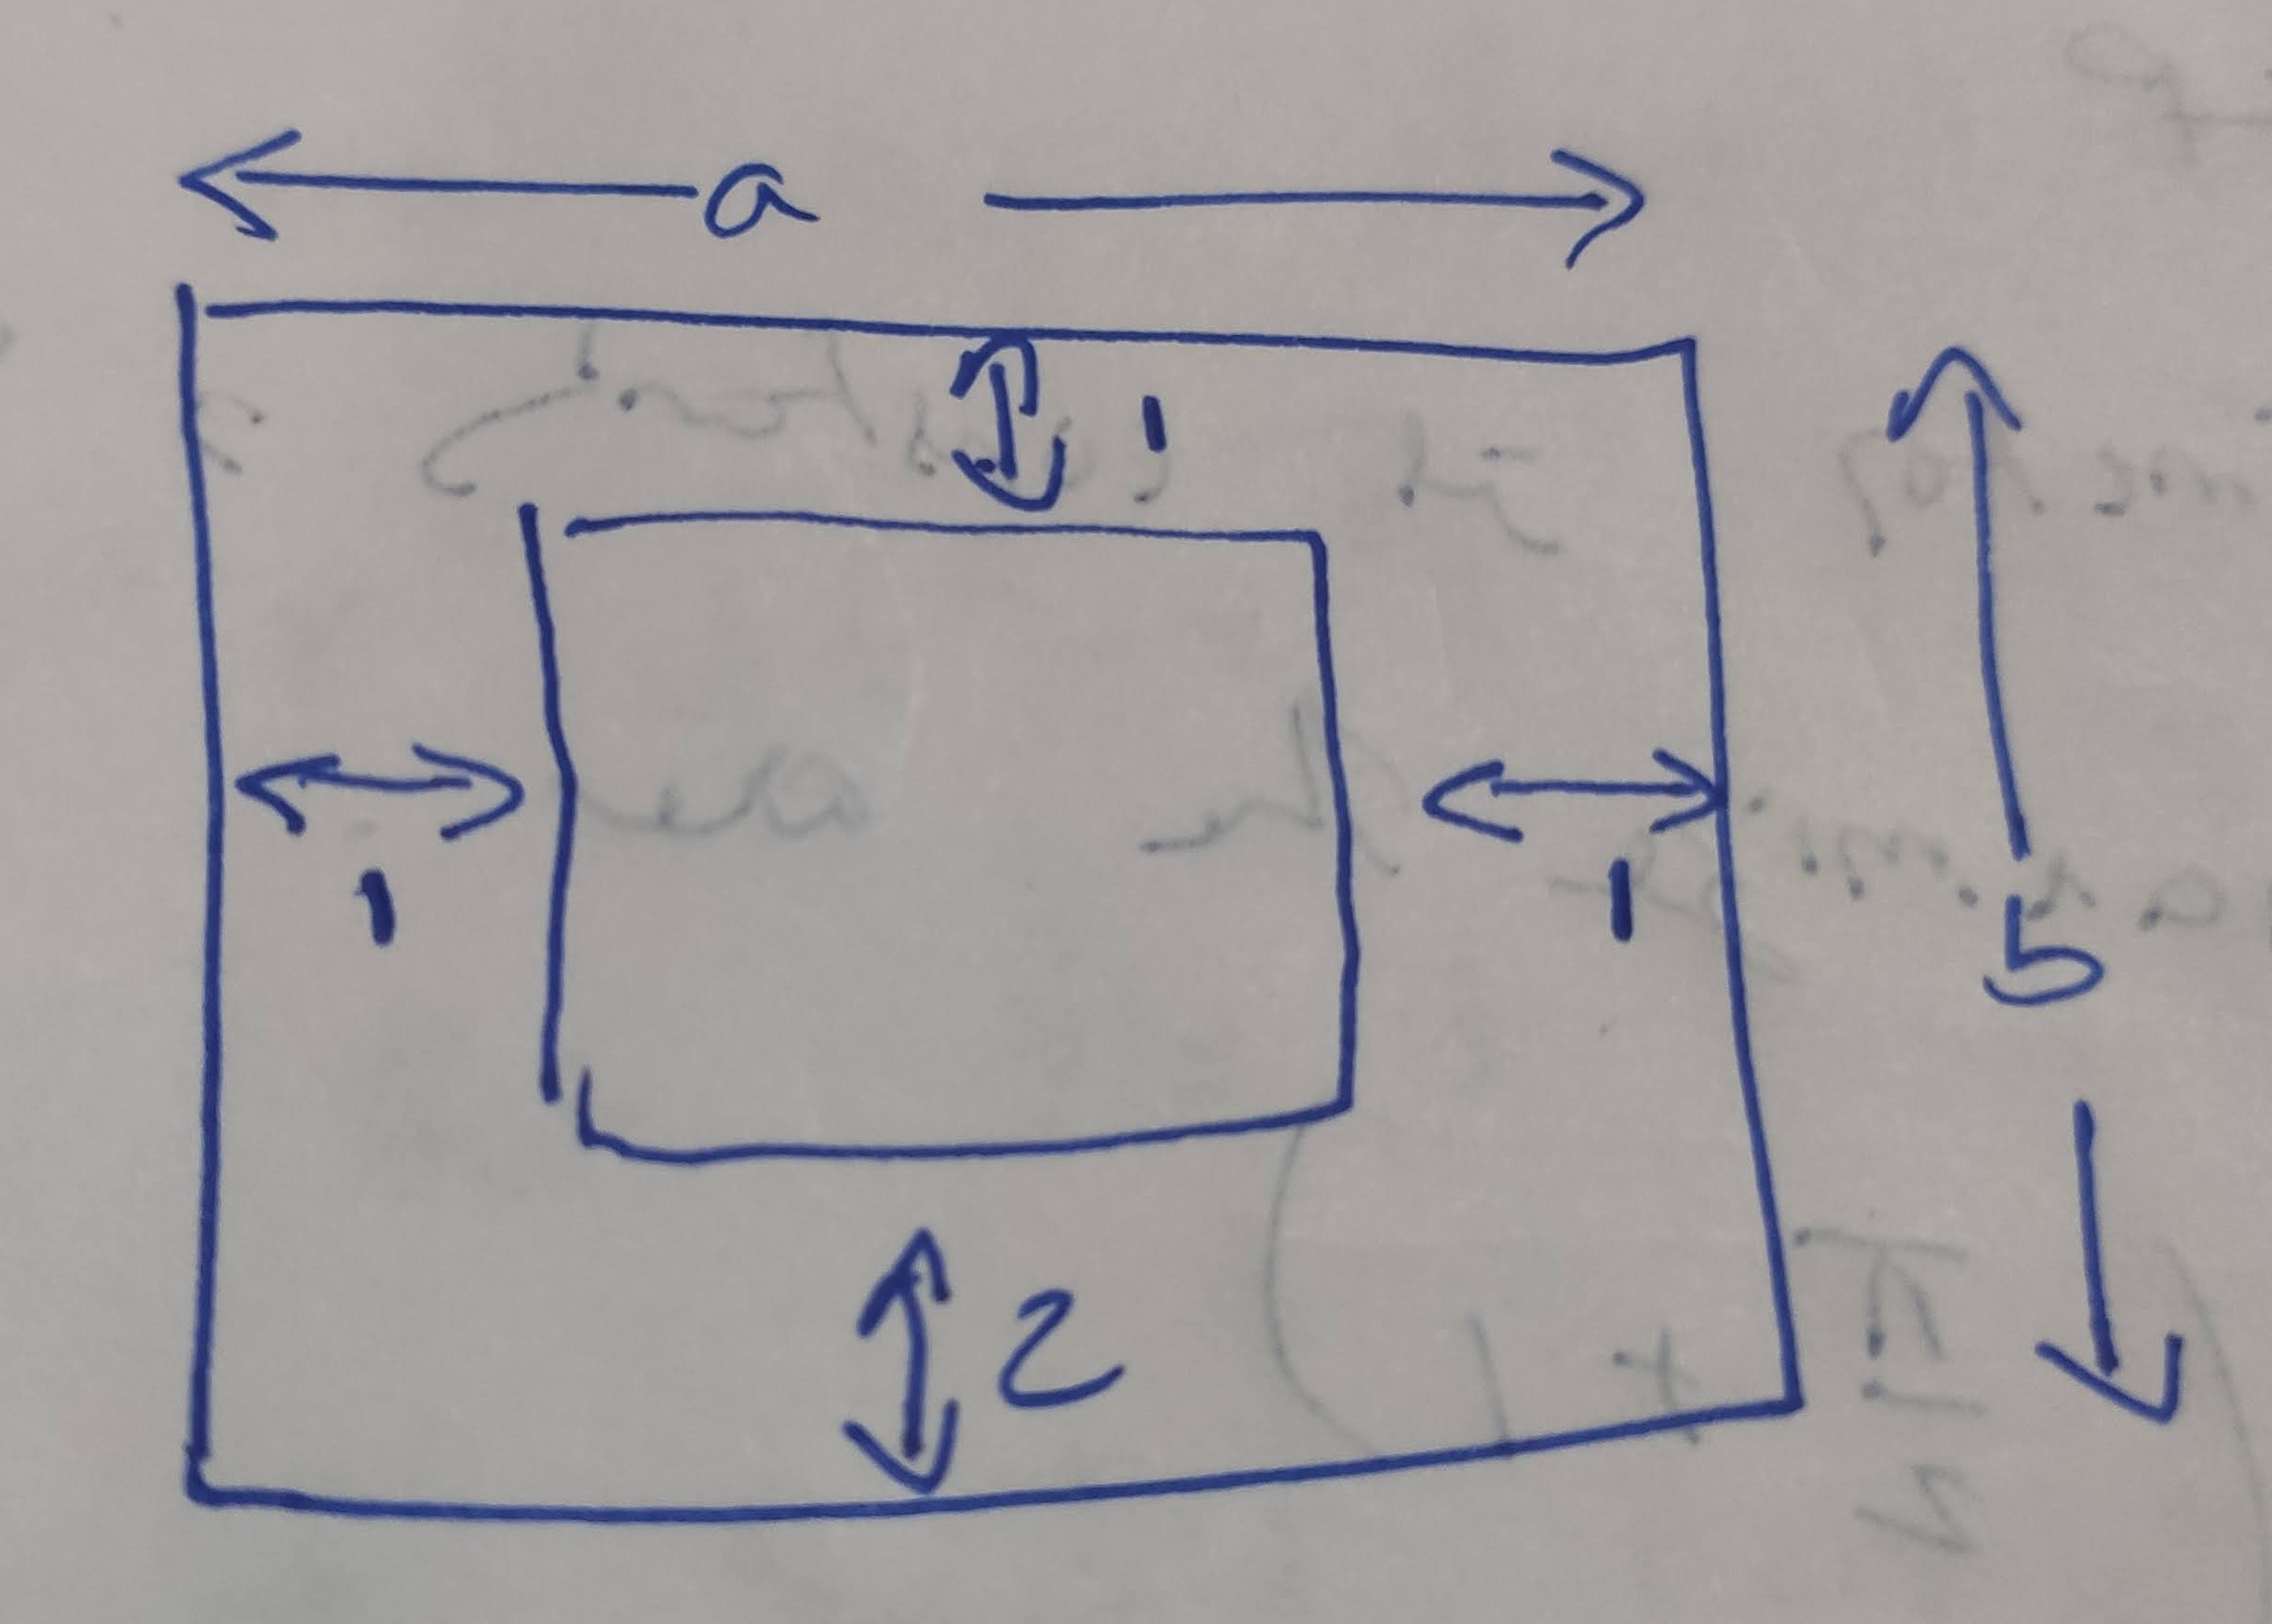 a
1
1
1
5
2